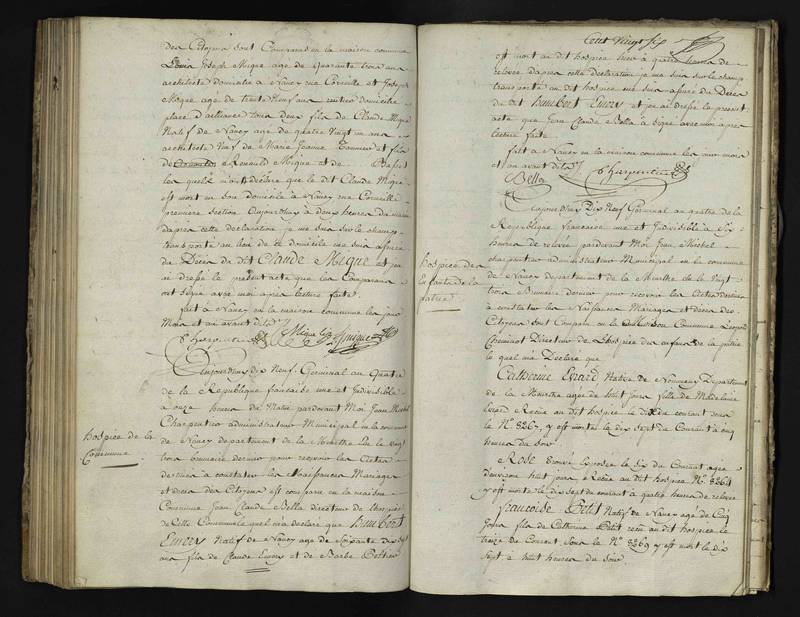 des Citoyens sont Comparus en la maison commune
Louis Joseph Mique age de Quarante trois ans
architecte domicilie a Nancy rue Corneille et Joseph
Mique agé de trente Neuf ans rentier domicilie
place d'alliance tous deux fils de Claude Mique
Natif de Nancy age de Quatre Vingt un ans
architecte Veuf de Marie Jeanne et fils
de Mique et de
les quels m'ont déclaré que le dit Claude Mique
est mort en son domicile à Nancy rue Corneille
premiere section Aujourdhuy à deux heures du matin
dapres cette declaration je me suis sur le champ
transporté au lieu de ce domicile me suis assuré
du Décès du dit Claude Mique et jai
dressé le présent acte que les Comparans
ont signé avec moi apres lecture faite.
fait à Nancy en la maison commune les jour
Mois et an avant dits
Charpentier Mique
Aujourdhuy dix Neuf Germinal an Quatre
de la Republique francaise une et Indivisible
a onze heures du Matin pardevant Moi Jean Michel
Charpentier administrateur Municipal en la commune
de Nancy departement de la Meurthe le vingt
trois brumaire dernier pour recevoir les actes
destinés à constater les Naissances Mariages
et deces des Citoyens est comparu en la maison
Commune Jean Claude Bella directeur de l'hospice
de Cette Commune lequel m'a declaré que Humbert
Natif de Nancy age de Soixante dix Sept
ans fils de Claude et de Barbe
hospice de la
Commune
Cent Vingt Six
est mort au dit hospice hier à quatre heures de
relevee dapres cette declaration je me suis sur le champ
transporté au dit hospice me suis assuré du Décès
du dit Humbert et jai dressé le present
acte que Jean Claude Bella à signé avec moi apres
lecture faite
fait à Nancy en la maison commune les jour mois
et an avant dits
Bella Charpentier
Aujourdhuy Dix Neuf Germinal an quatre de la
Republique francaise une et Indivisible à Six
heures de relevée pardevant Moi Jean Michel
charpentier administrateur Municipal en la commune
de Nancy departement de la Meurthe le Vingt
trois Brumaire dernier pour recevoir les Actes destinés
à constater les Naissances Mariages et deces des
Citoyens est Comparu en la Maison Commune Leopold
Directeur de L'hospice des enfans de la patrie
le quel m'a Declaré que
Catherine Evrard Native de Departement
de la Meurthe agee de huit jours fille de Madelaine
Evrard Recue au dit hospice le Dix du courant sous
le N° 8267, y est morte le dix sept du Courant à cinq
heures du soir
Rose trouvée Exposée le Six du Courant agée
d'environ huit jours Recue au dit hospice N° 8264
y est morte le dix sept du courant à quatre heures de relevée
Françoise Petit Natif de Nancy agé de Cinq
Jours fils de Catherine Petit recu au dit hospice le
treize du Courant Sous le N° 8269 y est mort le dix
Sept à huit heures du Soir
hospice des
enfants de la
patrie